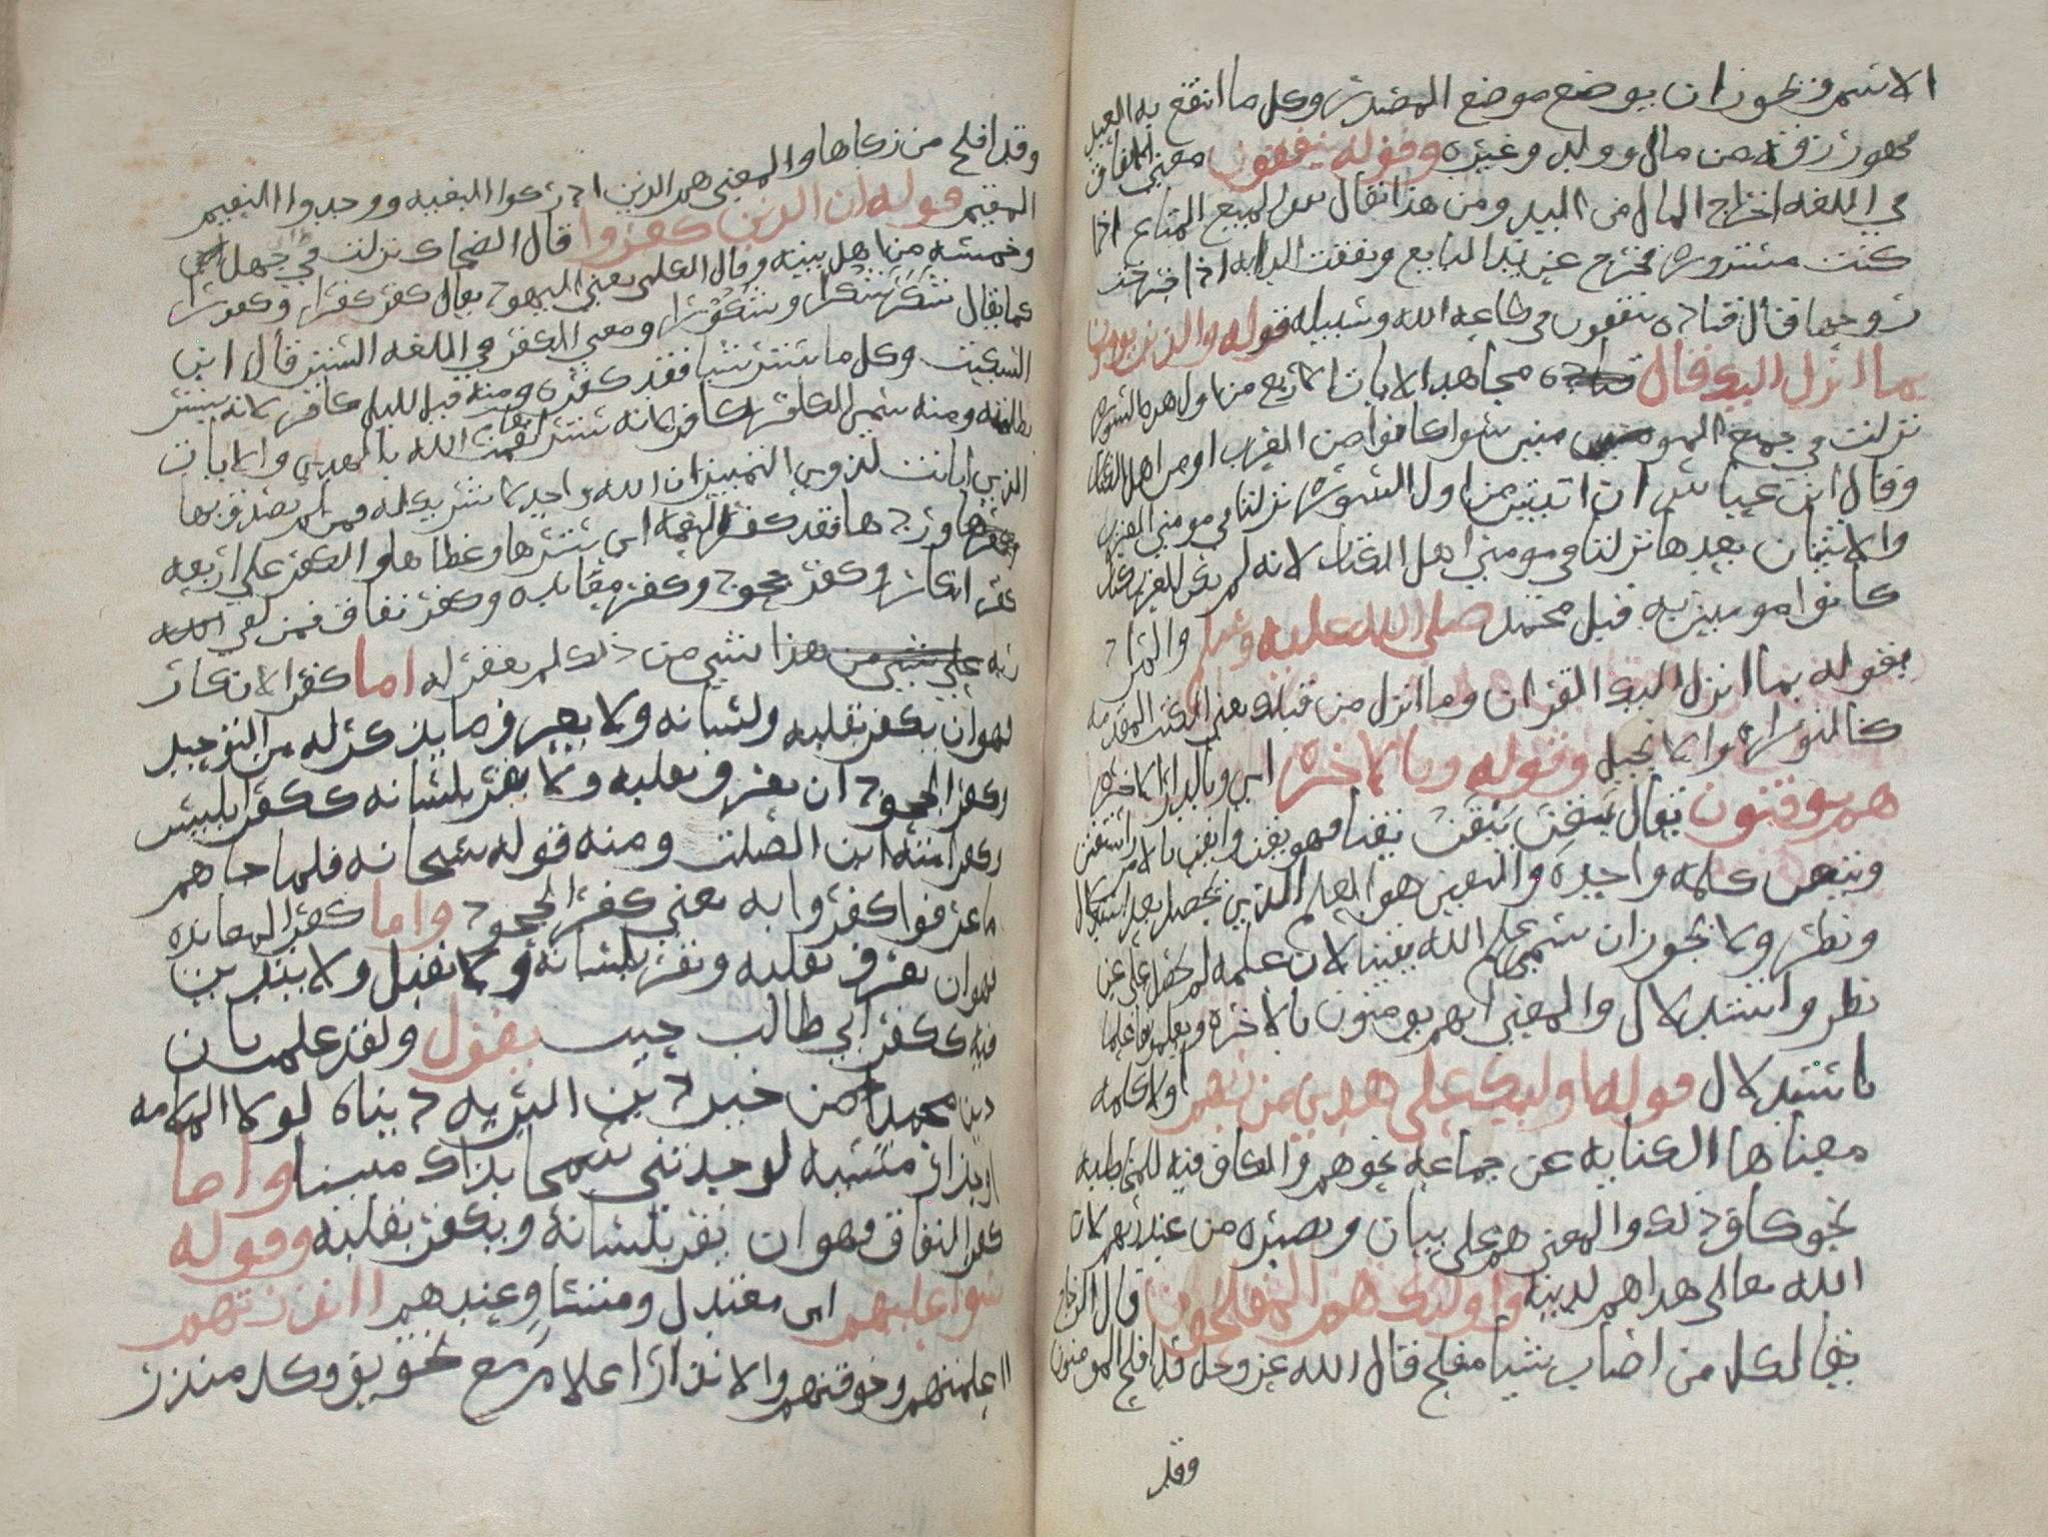 الاسم ونحوز ان يوضع موضع المصدر وكل ما انتفع به العبد
فهو رزقه من مال وولد وغيره وقوله ينفقون معنى الانفاق
في اللغه اخراج المال من اليد ومن هذا يقال نفق المبيع المتاع اذا
كثرت مشتروه فخرج عن يد البايع ونفقت الدابه اذا خرجت
روحها قال قتاده ينفقون في طاعه الله وسبيله قوله والذين يومنون
بما انزل اليك قال مجاهد الايات الاربع من اول هذه السوره
نزلت في جميع المومنين سوا كانوا من العرب او من اهل الكتاب
وقال ابن عباس ان اتيتين من اول السوره نزلتا في مومني العرب
والاثنتان بعدها نزلتا في مومني اهل الكتاب لانه لم يكن للعرب كتاب
كانوا مومنين به قبل محمد صلى الله عليه وسلم والمراد
بقوله بما انزل اليك القران وما انزل من قبلك يعني الكتب المقدمه
كالتوراه والانجيل وقوله وبالاخره اي وبالدار الاخره
هم يوقنون يقال يقن ييقن يقنا فهو يقن وايقن بالامر واستيقن
وتيقن كلمه واحده واليقين هو العلم الذي يحصل بعد استدلال
ونظر ولا يجوز ان يسمى علم الله يقينا لان علمه لم يحصل على عن
نظر واستدلال والمعنى انهم يومنون بالاخره ويعلمونها علما
باستدلال قوله اوليك على هدى من ربهم اولا كلمه
معناها الكنايه عن جماعه نحو هم والكاف فيه للمخاطبه
نحو كاف ذلك والمعنى هم على بيان وبصيره من عند ربهم لان
الله تعالى هداهم لدينه واوليك هم المفلحون قال الزجاج
يقال لكل من اصاب شيا مفلح قال الله عز وجل قد افلح المومنون
وقد
وقد افلح من زكاها والمعنى هم الذين ادركوا البغيه ووجدوا النعيم
المقيم قوله ان الذين كفروا قال الضحاك نزلت في ابي جهل
وخمسه من اهل بيته وقال الكلبي يعني اليهود يقال كفر كفرا وكفورا
كما يقال شكر شكرا وشكورا ومعنى الكفر في اللغه الستر قال ابن
السكيت وكل ما ستر شيا فقد كفره ومنه قيل لليل كافر لانه يستر
بظلمته ومنه سمي الكافر كافرا لانه ستر نعمت الله بالهدى والايات
الذي ابانت لذوي التمييز ان الله واحد لا شريك له فمن لم يصدق بها
وردها فقد كفر النعمه اي سترها وغطاها والكفر على اربعه
كفر انكار وكفر جحود وكفر معانده وكفر نفاق فمن لقي الله
ربه على شي من هذا بشي من ذلك لم يغفر له اما كفر الانكار
فهو ان يكفر بقلبه ولسانه ولا يعرف ما يذكر له من التوحيد
وكفر الجحود ان يعرف بقلبه ولا يقر بلسانه ككفر ابليس
وكفر اميه ابن الصلت ومنه قوله سبحانه فلما جاهم
ما عرفوا كفروا به يعني كفر الجحود واما كفر المعانده
فهو ان يعرف بقلبه ويقر بلسانه ولا يقبل ولا يتدين
فيه ككفر ابي طالب حيث يقول ولقد علمت بان
دين محمد من خير دين البريه دينا لولا الملامه
او حذار مسبه لوجدتني سمحا بذاك مبينا واما
كفر النفاق فهو ان يقر بلسانه ويكفر بقلبه وقوله
سوا عليهم اي معتدل ومتساو عندهم اانذرتهم
ااعلمتهم وخوفتهم والانذار اعلام مع تخويف وكل منذر